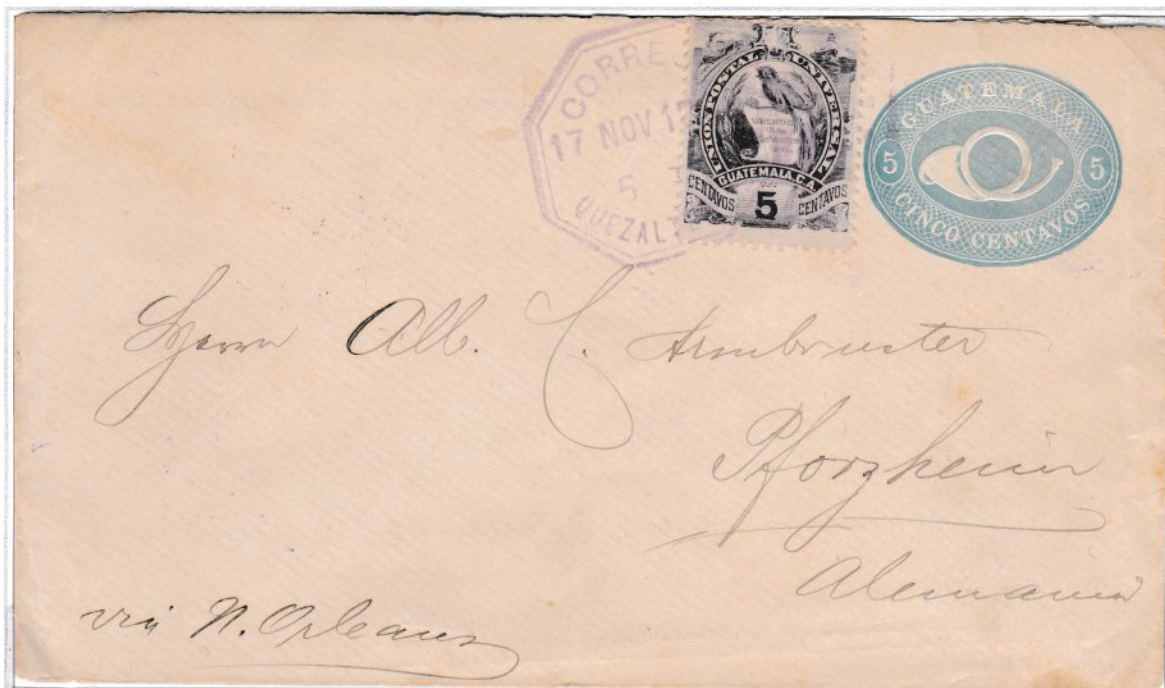 CORREO
17 NOV 1
5
QUEZALT
UNION POSTAL UNIVERSAL
GUATEMALA. C.A.
CENTAVOS 5 CENTAVOS
GUATEMALA
5 5
CINCO CENTAVOS
Herrn Alb. C. Armbruster
Pforzheim
Alemania
via N. Orleans